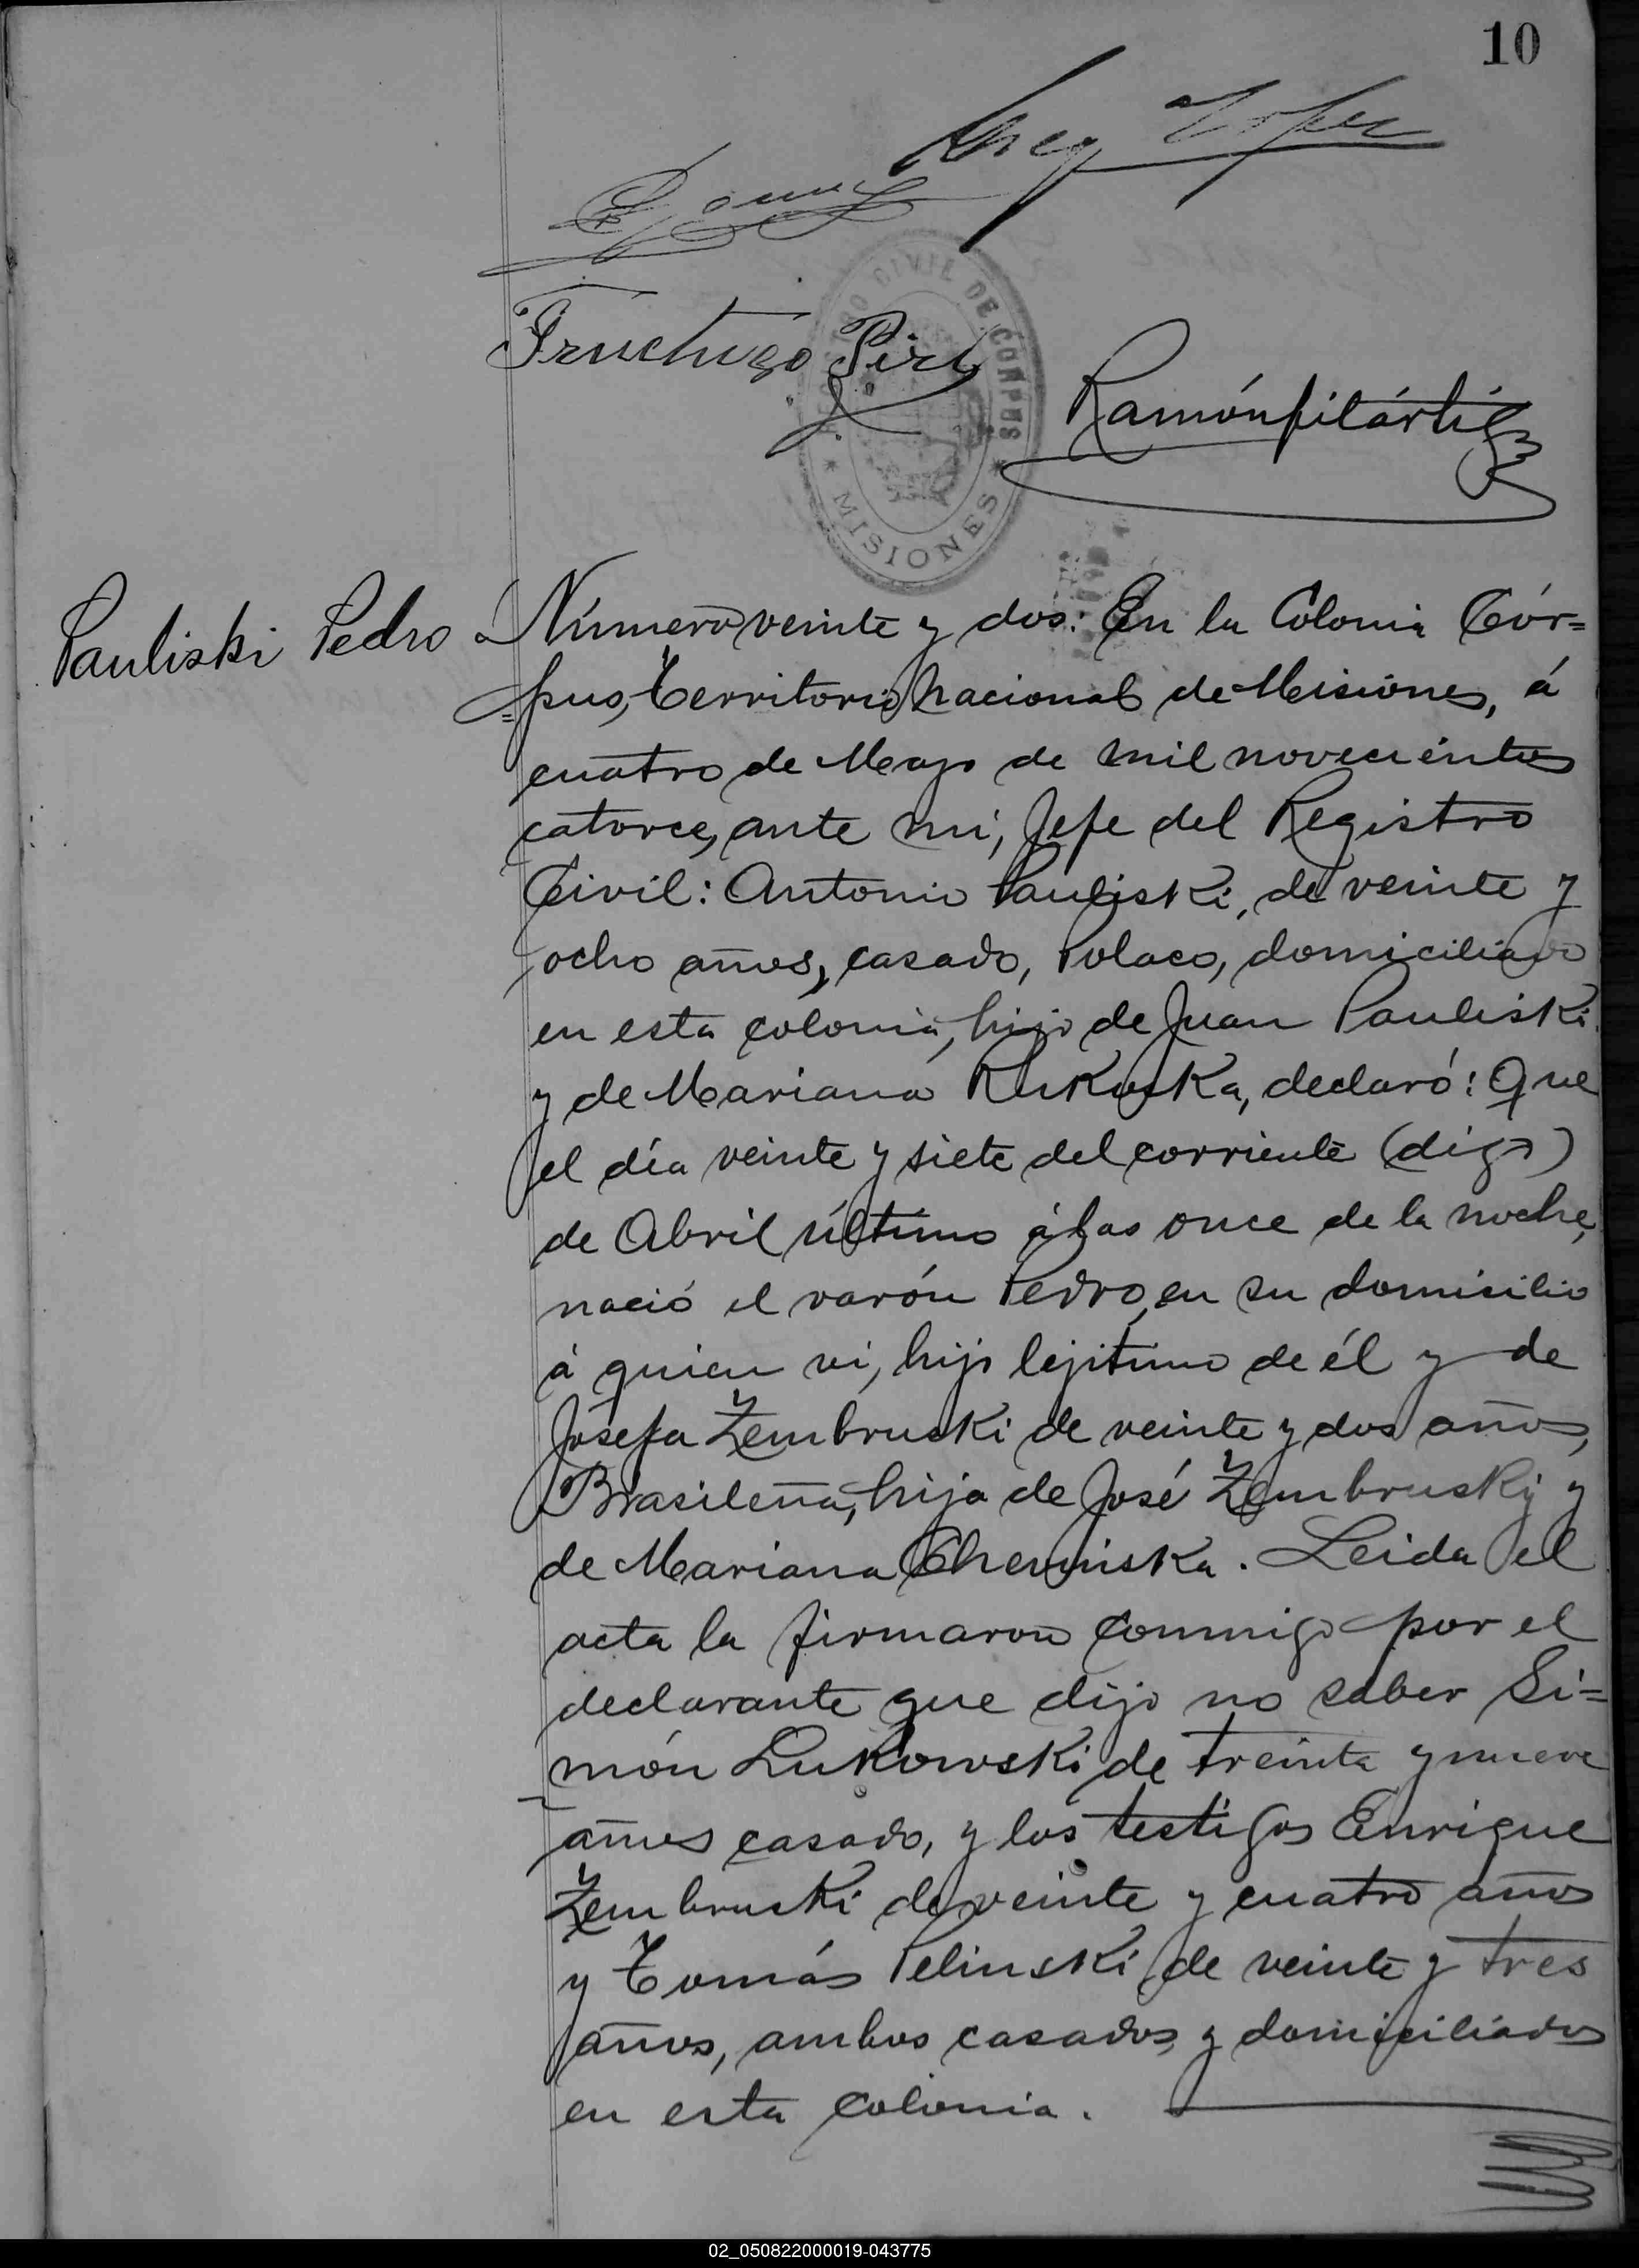 10
Lopez
Gomez
Fructuoso
Ramón
REGISTRO CIVIL DE CORPUS
* MISIONES *
Pauliski Pedro
Número veinte y dos: En la Colonia Cór=
=pus, Territorio Nacional de Misiones, á
cuatro de Mayo de mil novecientos
catorce, ante mi, Jefe del Registro
Civil: Antonio Pauliski, de veinte y
ocho años, casado, Polaco, domiciliado
en esta colonia, hijo de Juan Pauliski
y de Mariana declaró: Que
el día veinte y siete del corriente (digo)
de Abril último á las once de la noche,
nació el varón Pedro, en su domicilio
á quien vi, hijo lejitimo de él y de
Josefa Zembruski de veinte y dos años,
Brasileña, hija de José Zembrusky y
de Mariana Cheminska. Leida el
acta la firmaron conmigo por el
declarante que dijo no saber Si=
món Lukowski de treinta y nueve
años casado, y los testigos Enrique
Zembruski de veinte y cuatro años
y Tomás Pelinski de veinte y tres
años, ambos casados y domiciliados
en esta colonia.
02_050822000019-043775